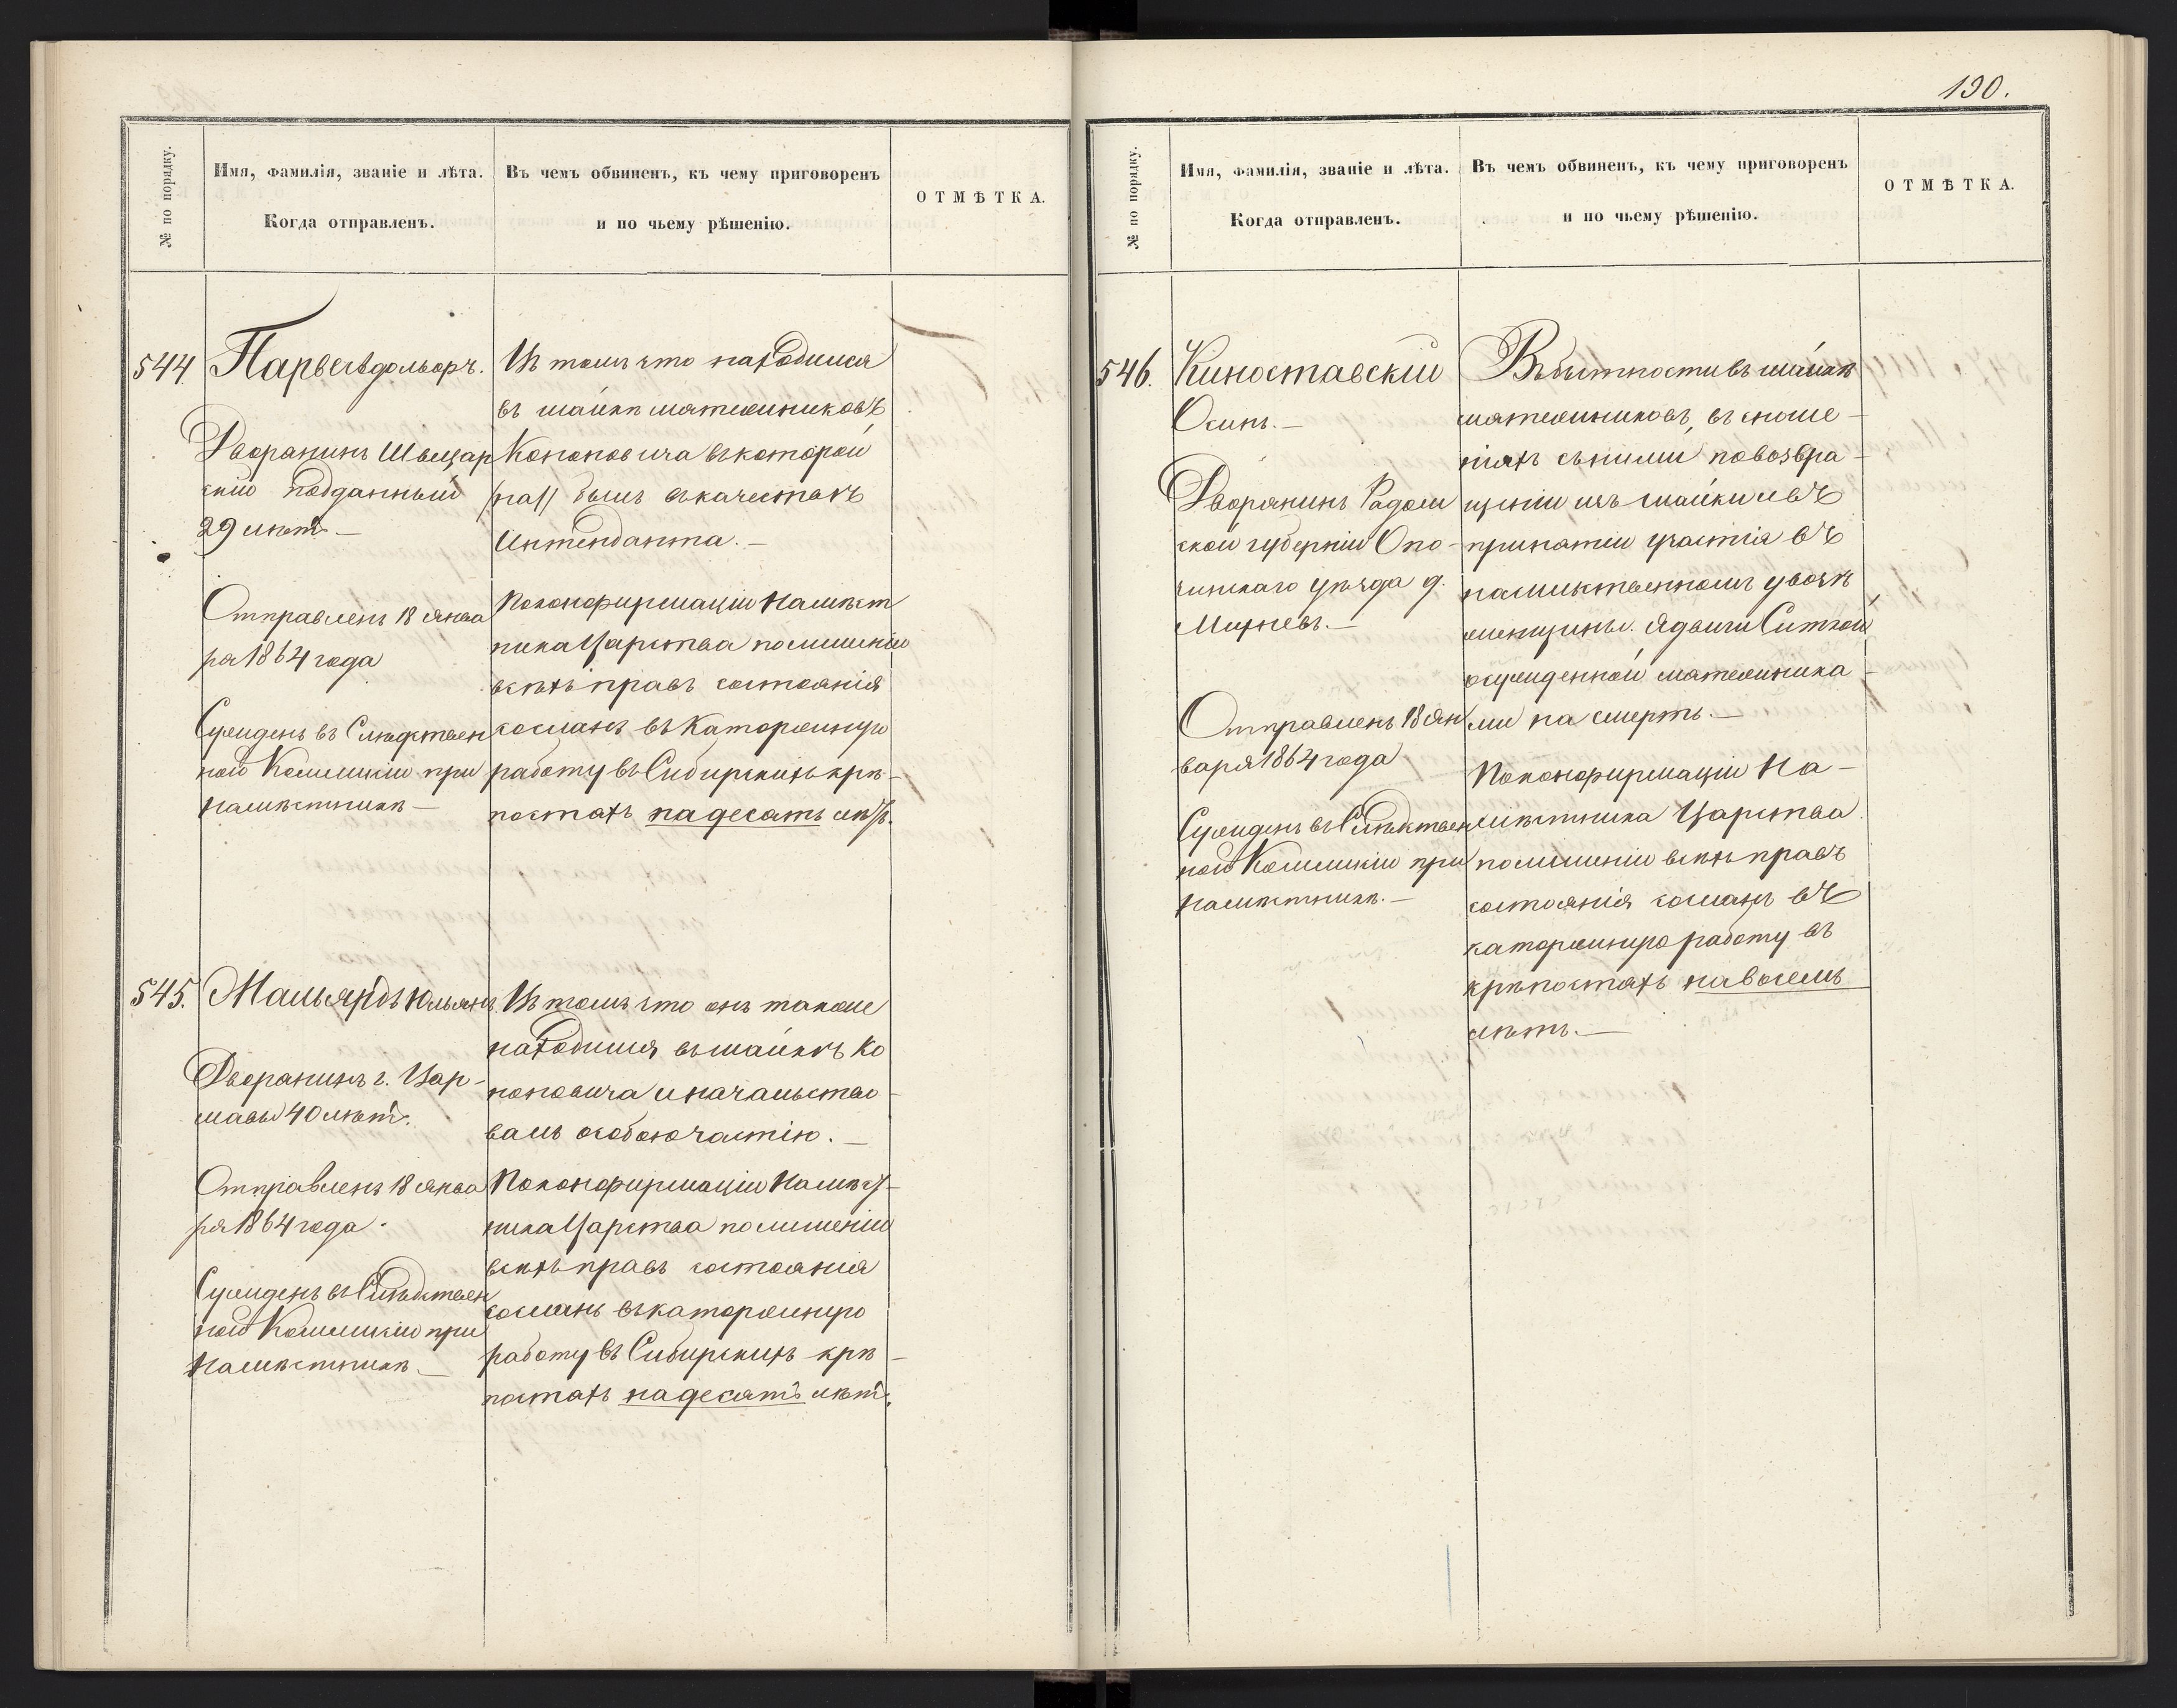 № по порядку.
Имя, фамилія, званіе и лѣта.
Когда отправленъ.
Въ чемъ обвиненъ, къ чему приговоренъ
и по чьему рѣшенію.
ОТМѢТКА.
544.
Дворянинъ Швецар
скій подданный
29 лѣтъ —
Отправленъ 18 янва
ря 1864 года
Сужденъ въ Слѣдствен
ной Коммисіи при
Намѣстникѣ —
Въ томъ что находился
въ шайкѣ мятежниковъ
Кононовича въ которой
былъ въ качествѣ
Интенданта. —
По конфирмаціи Намѣст
ника Царства по лишеніи
всѣхъ правъ состоянія
сосланъ въ каторжную
работу въ Сибирскихъ крѣ-
постяхъ на десять лѣтъ.
545.
Юльянъ.
Дворянинъ г. Вар-
шавы 40 лѣтъ.
Отправленъ 18 янва
ря 1864 года.
Сужденъ въ Слѣдствен
ной Коммисіи при
Намѣстникѣ. —
Въ томъ что онъ такоже
находился въ шайкѣ Ко
ноновича и начальство-
валъ особою частію. —
По конфирмаціи Намѣст-
ника Царства по лишеніи
всѣхъ правъ состоянія
сосланъ въ каторжную
работу въ Сибирскихъ крѣ-
постяхъ на десять лѣтъ.
130.
№ по порядку.
Имя, фамилія, званіе и лѣта.
Когда отправленъ.
Въ чемъ обвиненъ, къ чему приговоренъ
и по чьему рѣшенію.
ОТМѢТКА.
546.
Киноставскій
Осипъ. —
Дворянинъ Радом
ской губерніи Опо-
чинскаго уѣзда д.
Отправленъ 18 ян
варя 1864 года
Сужденъ въ Слѣдствен
ной Коммисіи при
Намѣстникѣ. —
Въ бытности въ шайкѣ
мятежниковъ, въ сноше-
ніяхъ съ ними по возвра-
щеніи изъ шайки и въ
принятіи участія въ
насильственномъ увозѣ
женщины Ядвиги
осужденной мятежника-
ми на смерть. —
По конфирмаціи На-
мѣстника Царства
по лишеніи всѣхъ правъ
состоянія сосланъ въ
каторжную работу въ
крѣпостяхъ на восемь
лѣтъ. —